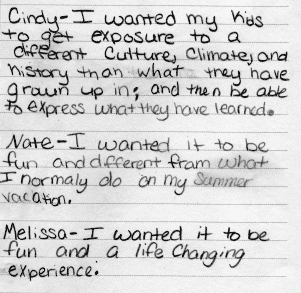 Cindy-I wanted my kids
to get exposure to a
different Culture, Climate, and
history than what they have
grown up in; and then be able
to express what they have learned.
Nate-I wanted it to be
fun and different from what
I normaly do on my Summer
vacation.
Melissa-I wanted it to be
fun and a life Changing
experience.